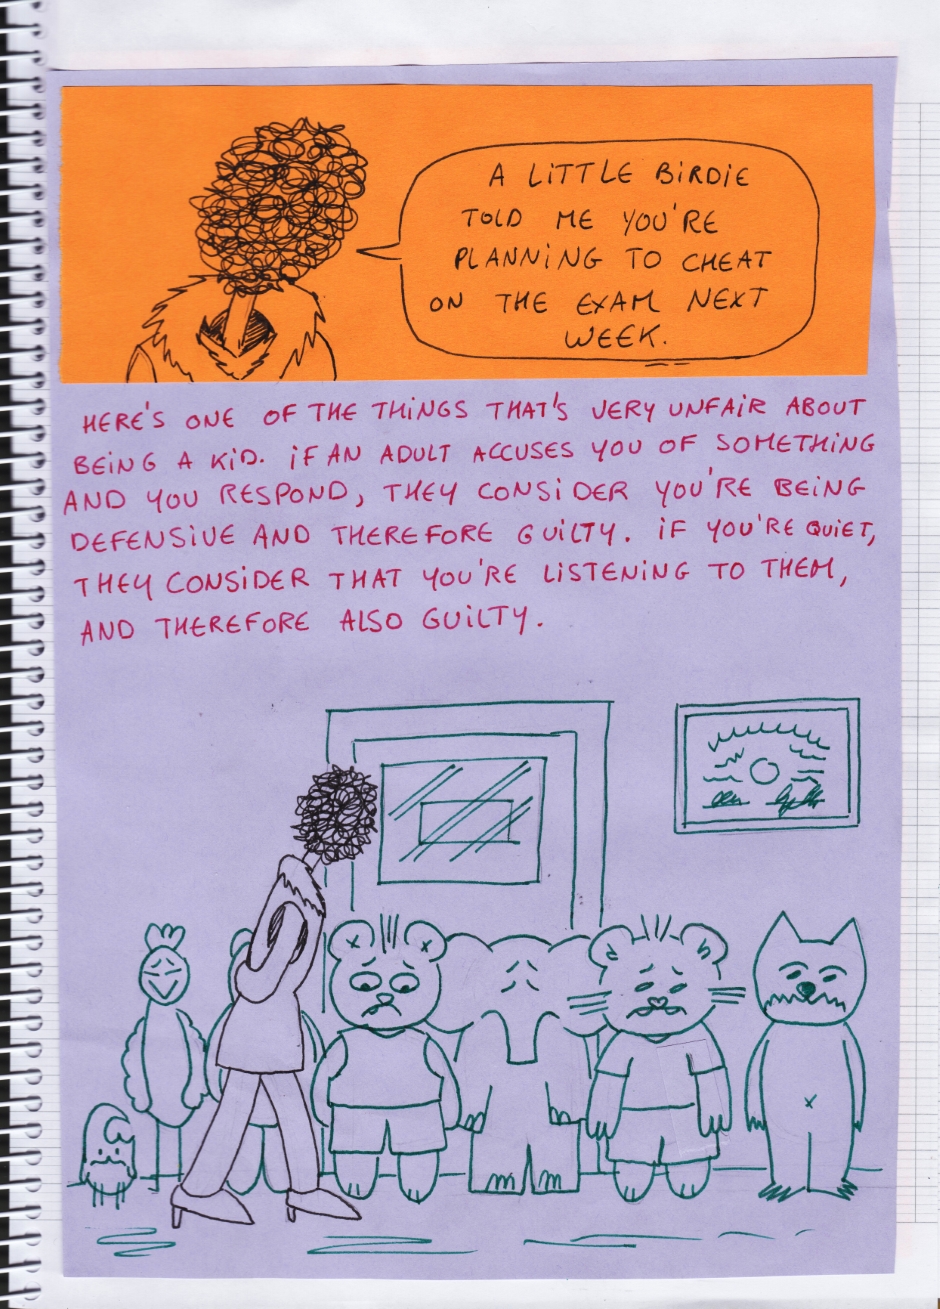 A LITTLE BIRDIE
TOLD ME YOU'RE
PLANNING TO CHEAT
ON THE EXAM NEXT
WEEK.
HERE'S ONE OF THE THINGS THAT'S VERY UNFAIR ABOUT
BEING A KID. IF AN ADULT ACCUSES YOU OF SOMETHING
AND YOU RESPOND, THEY CONSIDER YOU'RE BEING
DEFENSIVE AND THEREFORE GUILTY. IF YOU'RE QUIET,
THEY CONSIDER THAT YOU'RE LISTENING TO THEM,
AND THEREFORE ALSO GUILTY.